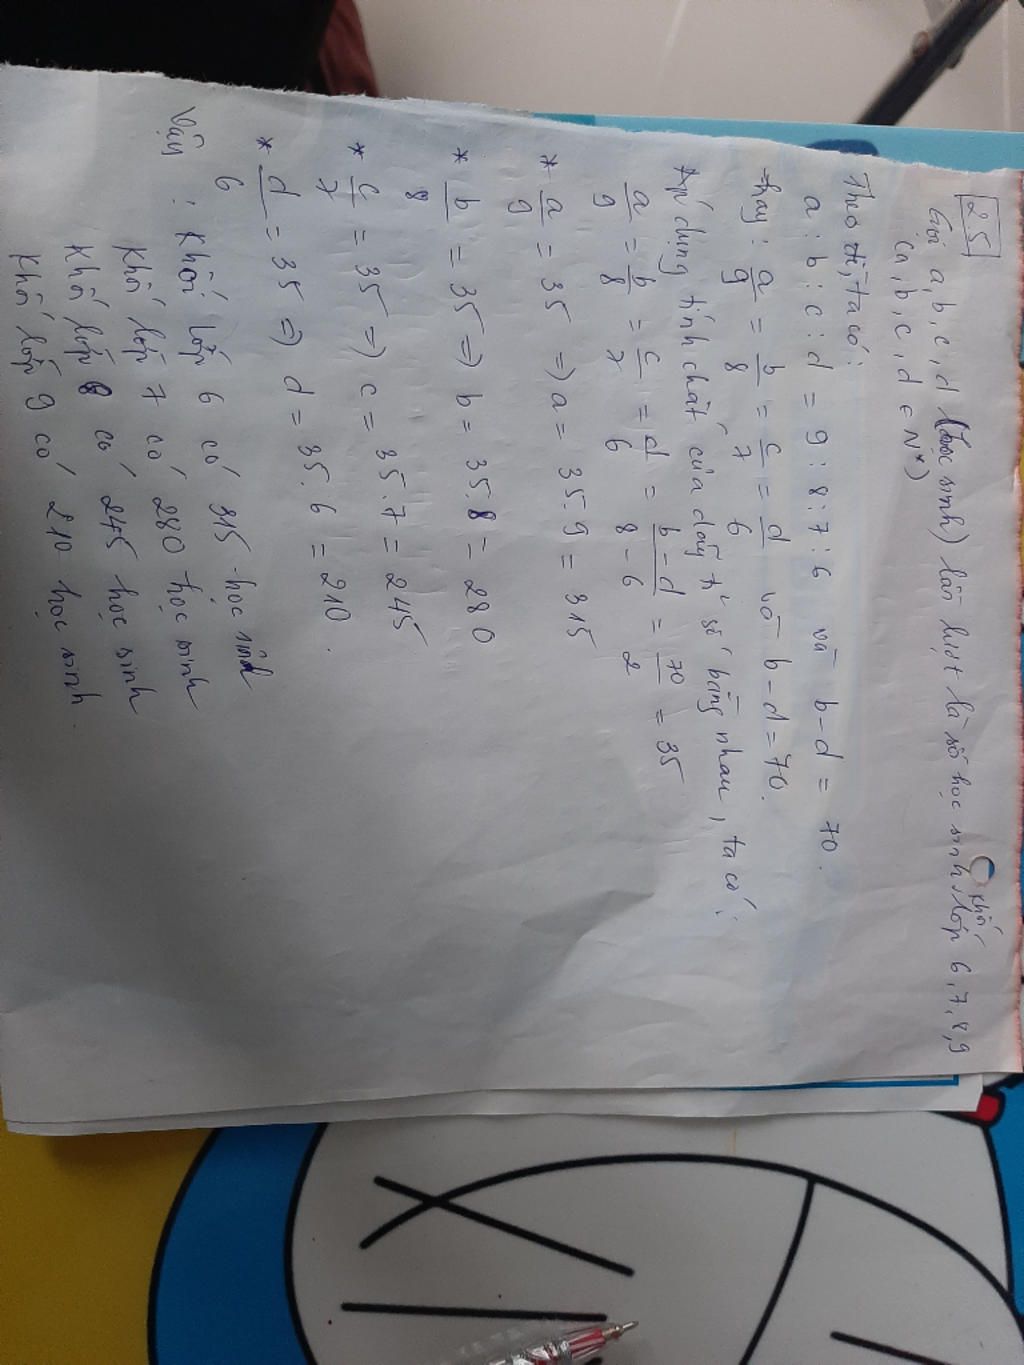 25
Gọi a, b, c, d (học sinh) lần lượt là số học sinh khối lớp 6, 7, 8, 9
(a, b, c, d ∈ N*)
Theo đề, ta có:
a : b : c : d = 9 : 8 : 7 : 6 và b - d = 70.
hay: a/9 = b/8 = c/7 = d/6 và b - d = 70.
Áp dụng tính chất của dãy tỉ số bằng nhau, ta có:
a/9 = b/8 = c/7 = d/6 = b-d/8-6 = 70/2 = 35
* a/9 = 35 => a = 35.9 = 315
* b/8 = 35 => b = 35.8 = 280
* c/7 = 35 => c = 35.7 = 245
* d/6 = 35 => d = 35.6 = 210.
Vậy: Khối lớp 6 có 315 học sinh
Khối lớp 7 có 280 học sinh
Khối lớp 8 có 245 học sinh
Khối lớp 9 có 210 học sinh.